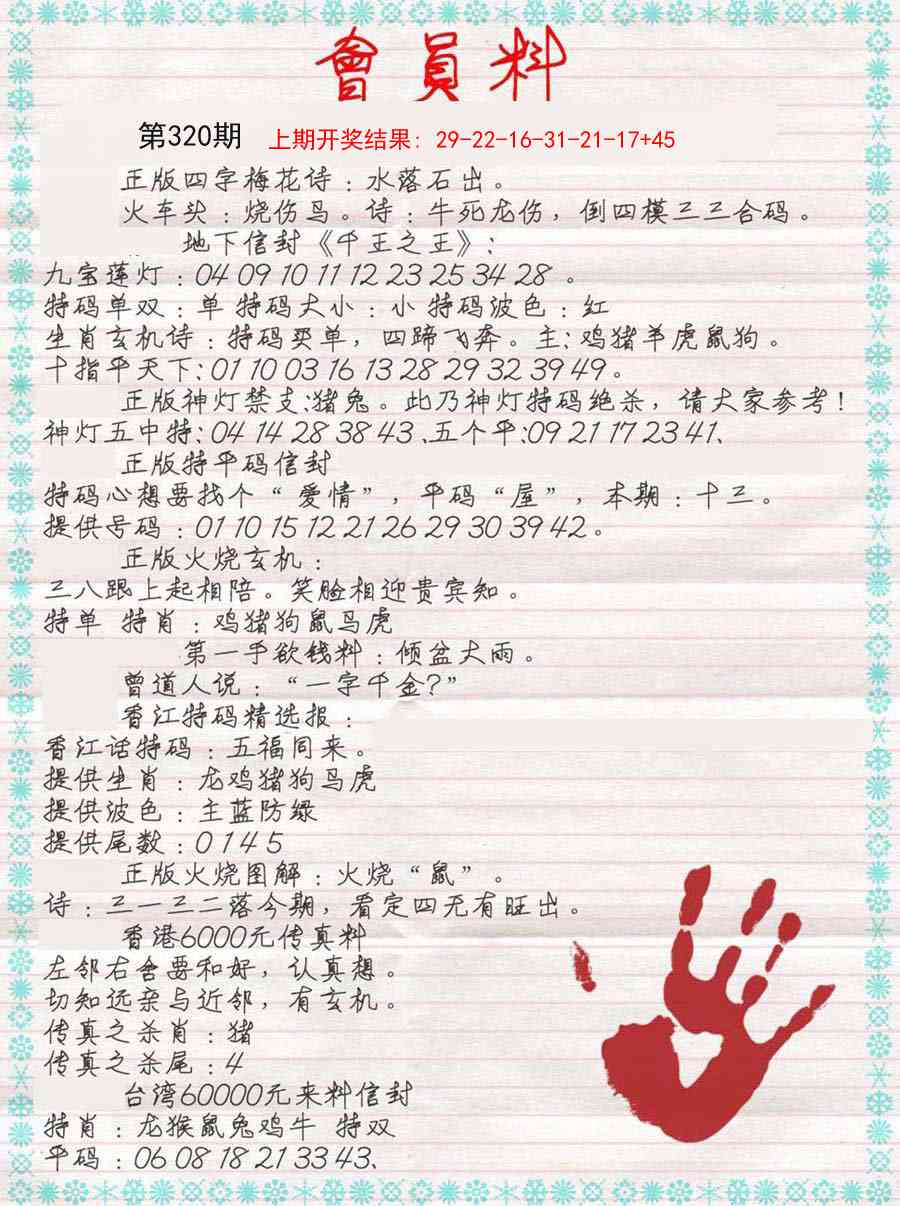 會員料
第320期 上期开奖结果：29-22-16-31-21-17+45
正版四字梅花诗：水落石出。
火车头：烧伤鸟。诗：牛死龙伤，倒四模三三合码。
地下信封《千王之王》：
九宝莲灯：04 09 10 11 12 23 25 34 28 。
特码单双：单 特码大小：小 特码波色：红
生肖玄机诗：特码买单，四蹄飞奔。主：鸡猪羊虎鼠狗。
十指平天下：01 10 03 16 13 28 29 32 39 49。
正版神灯禁支:猪兔。此乃神灯特码绝杀，请大家参考！
神灯五中特：04 14 28 38 43、五个平:09 21 17 23 41、
正版特平码信封
特码心想要找个“爱情”，平码“屋”，本期：十三。
提供号码：01 10 15 12 21 26 29 30 39 42。
正版火烧玄机：
三八跟上起相陪。笑脸相迎贵宾知。
特单 特肖：鸡猪狗鼠马虎
第一手欲钱料：倾盆大雨。
曾道人说：“一字千金？”
香江特码精选报：
香江话特码：五福同来。
提供生肖：龙鸡猪狗马虎
提供波色：主蓝防绿
提供尾数：0 1 4 5
正版火烧图解：火烧“鼠”。
诗：三一三二落今期，看定四无有旺出。
香港6000元传真料
左邻右舍要和好，认真想。
切知远亲与近邻，有玄机。
传真之杀肖：猪
传真之杀尾：4
台湾60000元来料信封
特肖：龙猴鼠兔鸡牛 特双
平码：06 08 18 21 33 43、